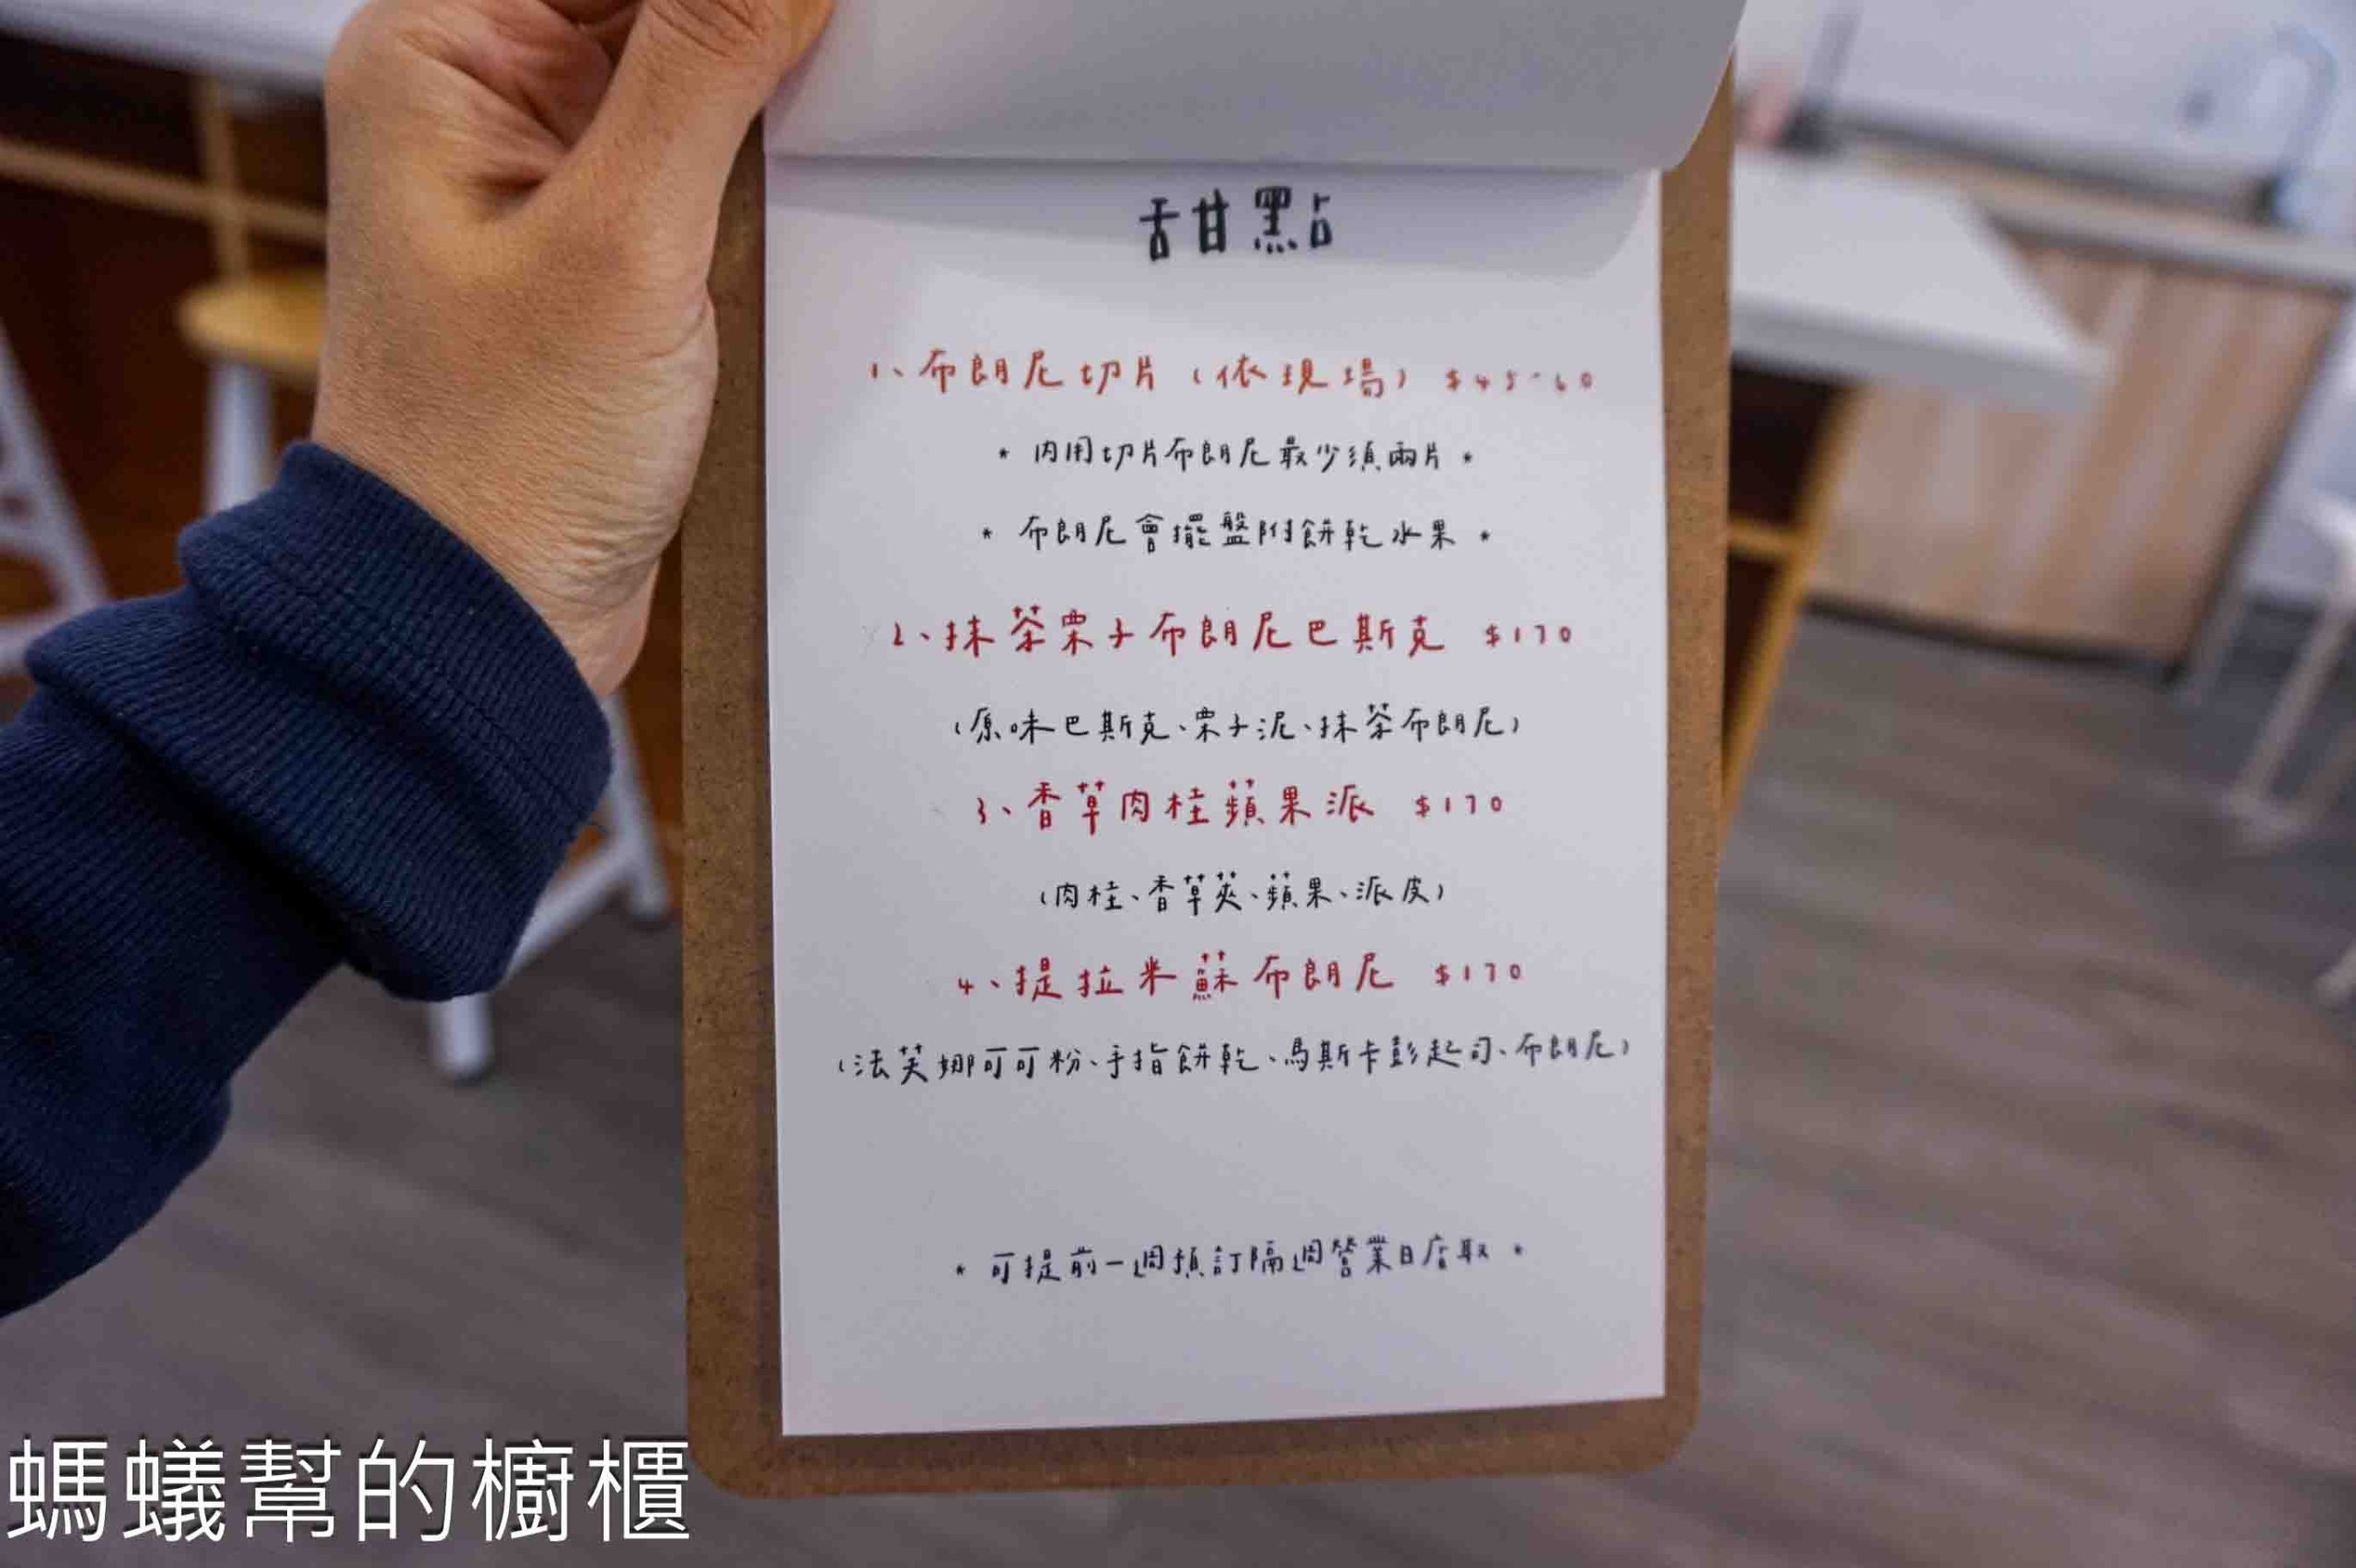 甜點
1、布朗尼切片(依現場) $45-60
* 內用切片布朗尼最少須兩片 *
* 布朗尼會擺盤附餅乾水果 *
2、抹茶栗子布朗尼巴斯克 $170
(原味巴斯克、栗子泥、抹茶布朗尼)
3、香草肉桂蘋果派 $170
(肉桂、香草莢、蘋果、派皮)
4、提拉米蘇布朗尼 $170
(法芙娜可可粉、手指餅乾、馬斯卡彭起司、布朗尼)
* 可提前一週預訂隔週營業日店取 *
螞蟻幫的櫥櫃